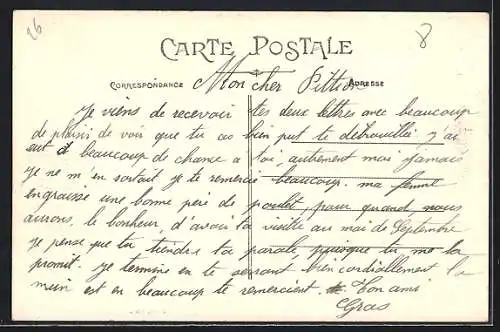 26
8
CARTE POSTALE
CORRESPONDANCE
ADRESSE
Mon cher
Je viens de recevoir tes deux lettres avec beaucoup
de plaisi de voir que tu as bien put te débrouiller j'ai
eut d beaucoup de chance a toi, autrement moi jamais
je ne m'en sortait je te remercie beaucoup. ma femme
engraisse une bonne pere de poulet, pour quand nous
aurons, le bonheur, d'avoir ta visite au moi de Septembre
je pense que tu tiendras ta parole, puisque tu me la
promit. je termine en te serrant bien cordiallement la
main est en beaucoup te remercient. Ton ami
Gras